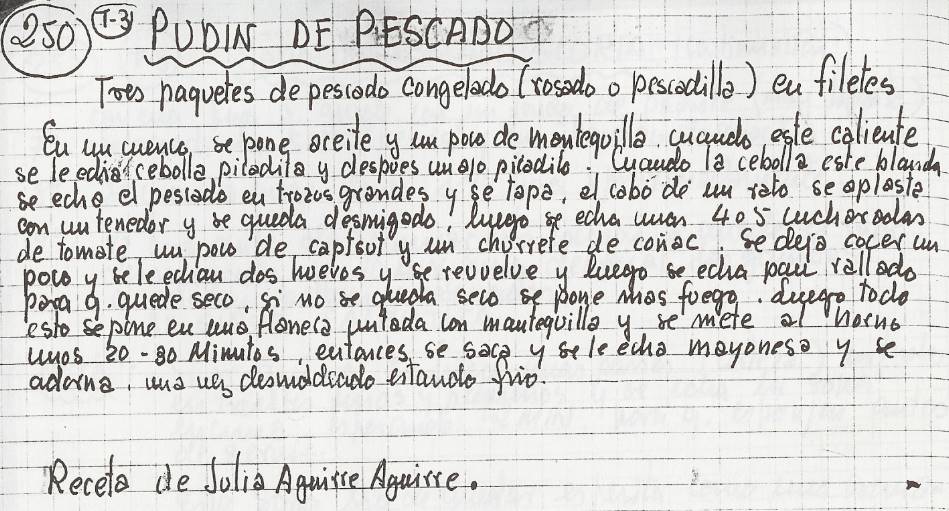 250 T-3 PUDIN DE PESCADO
Tres paquetes de pescado congelado (rosado o pescadilla) en filetes
En un cuenco, se pone aceite y un poco de mantequilla, cuando este caliente
se le echa cebolla picadita y despues un ajo picadito. Cuando la cebolla este blanda
se echa el pescado en trozos grandes y se tapa, al cabo de un rato se aplasta
con un tenedor y se queda desmigado, luego se echa unas 4 o 5 cucharadas
de tomate, un poco de captsut y un churrete de coñac. Se deja cocer un
poco y se le echan dos huevos y se revuelve y luego se echa pan rallado
para q. quede seco, si no se queda seco se pone mas fuego. Luego todo
esto se pone en una flanera untada con mantequilla y se mete al horno
unos 20-30 Minutos, entonces, se saca y se le echa mayonesa y se
adorna, una vez desmoldeado estando frio.
Receta de Julia Aguirre Aguirre.